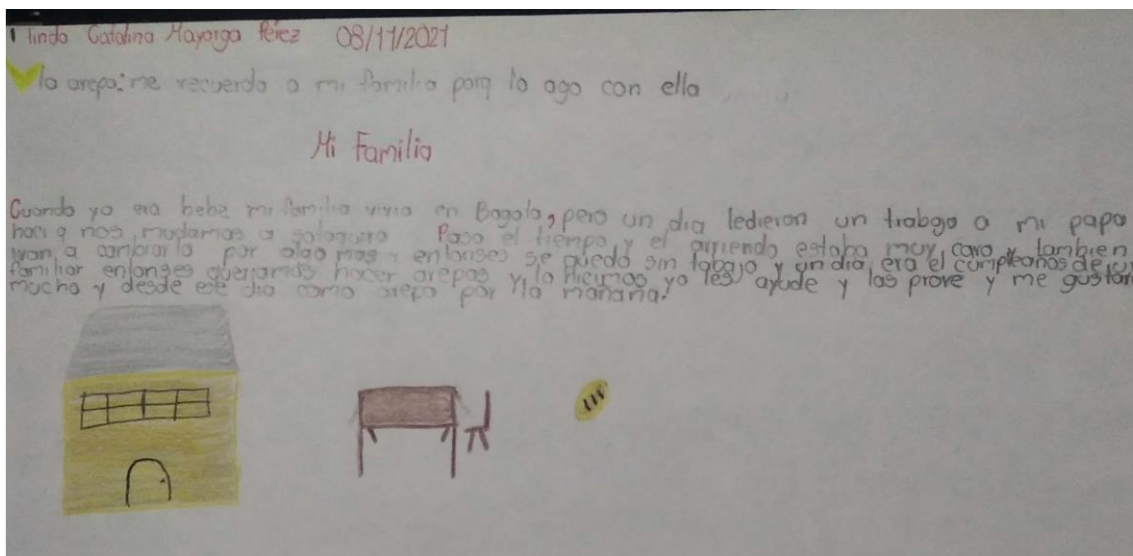 linda Catalina Mayorga Pérez 08/11/2021
la arepa: me recuerda a mi familia porq la ago con ella
Mi Familia
Cuando yo era bebe mi familia vivia en Bogota, pero un dia ledieron un trabajo a mi papa
haci q nos mudamos a Paso el tiempo y el arriendo estaba muy caro y tambien
ivan a cambiarlo por algo mas y entonses se quedo sin tabajo y un dia era el cumpleaños de un
familiar entonses queriamos hacer arepas y lo hicimos yo les ayude y las prove y me gustaron
mucho y desde ese dia como arepa por la mañana.